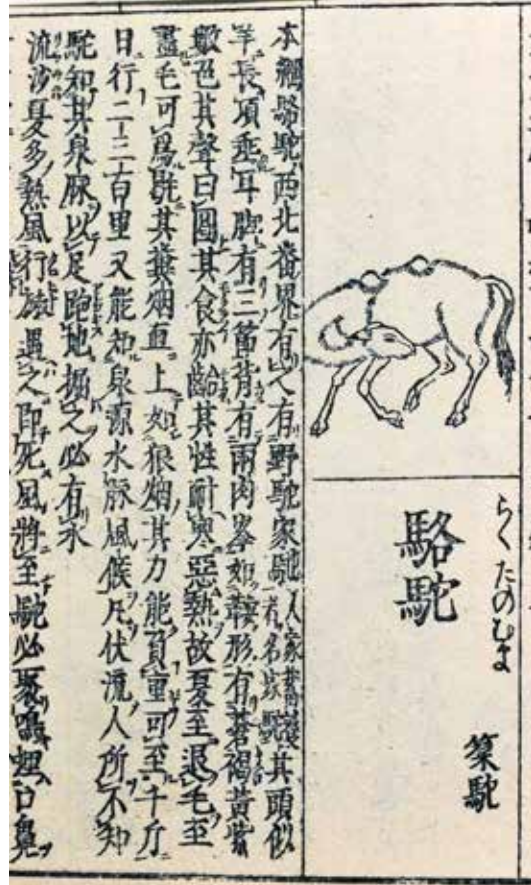 らくたのむま
駱駝
橐駝
本綱駱駝西北番界有之有野駝家駝人家畜養者名家駝其頭似
羊長項垂耳脚有三節背有兩肉峯如鞍形有蒼褐黄紫
數色其聲曰圔其食亦齝其性耐寒惡熱故夏至退毛至
盡毛可爲毼其糞烟直上如狼烟其力能負重可至千斤
日行二三百里又能知泉源水脉風候凡伏流人所不知
駝知其泉脉以足跑地掘之必有水
流沙夏多熱風行旅遇之即死風將至駝必聚鳴埋口鼻